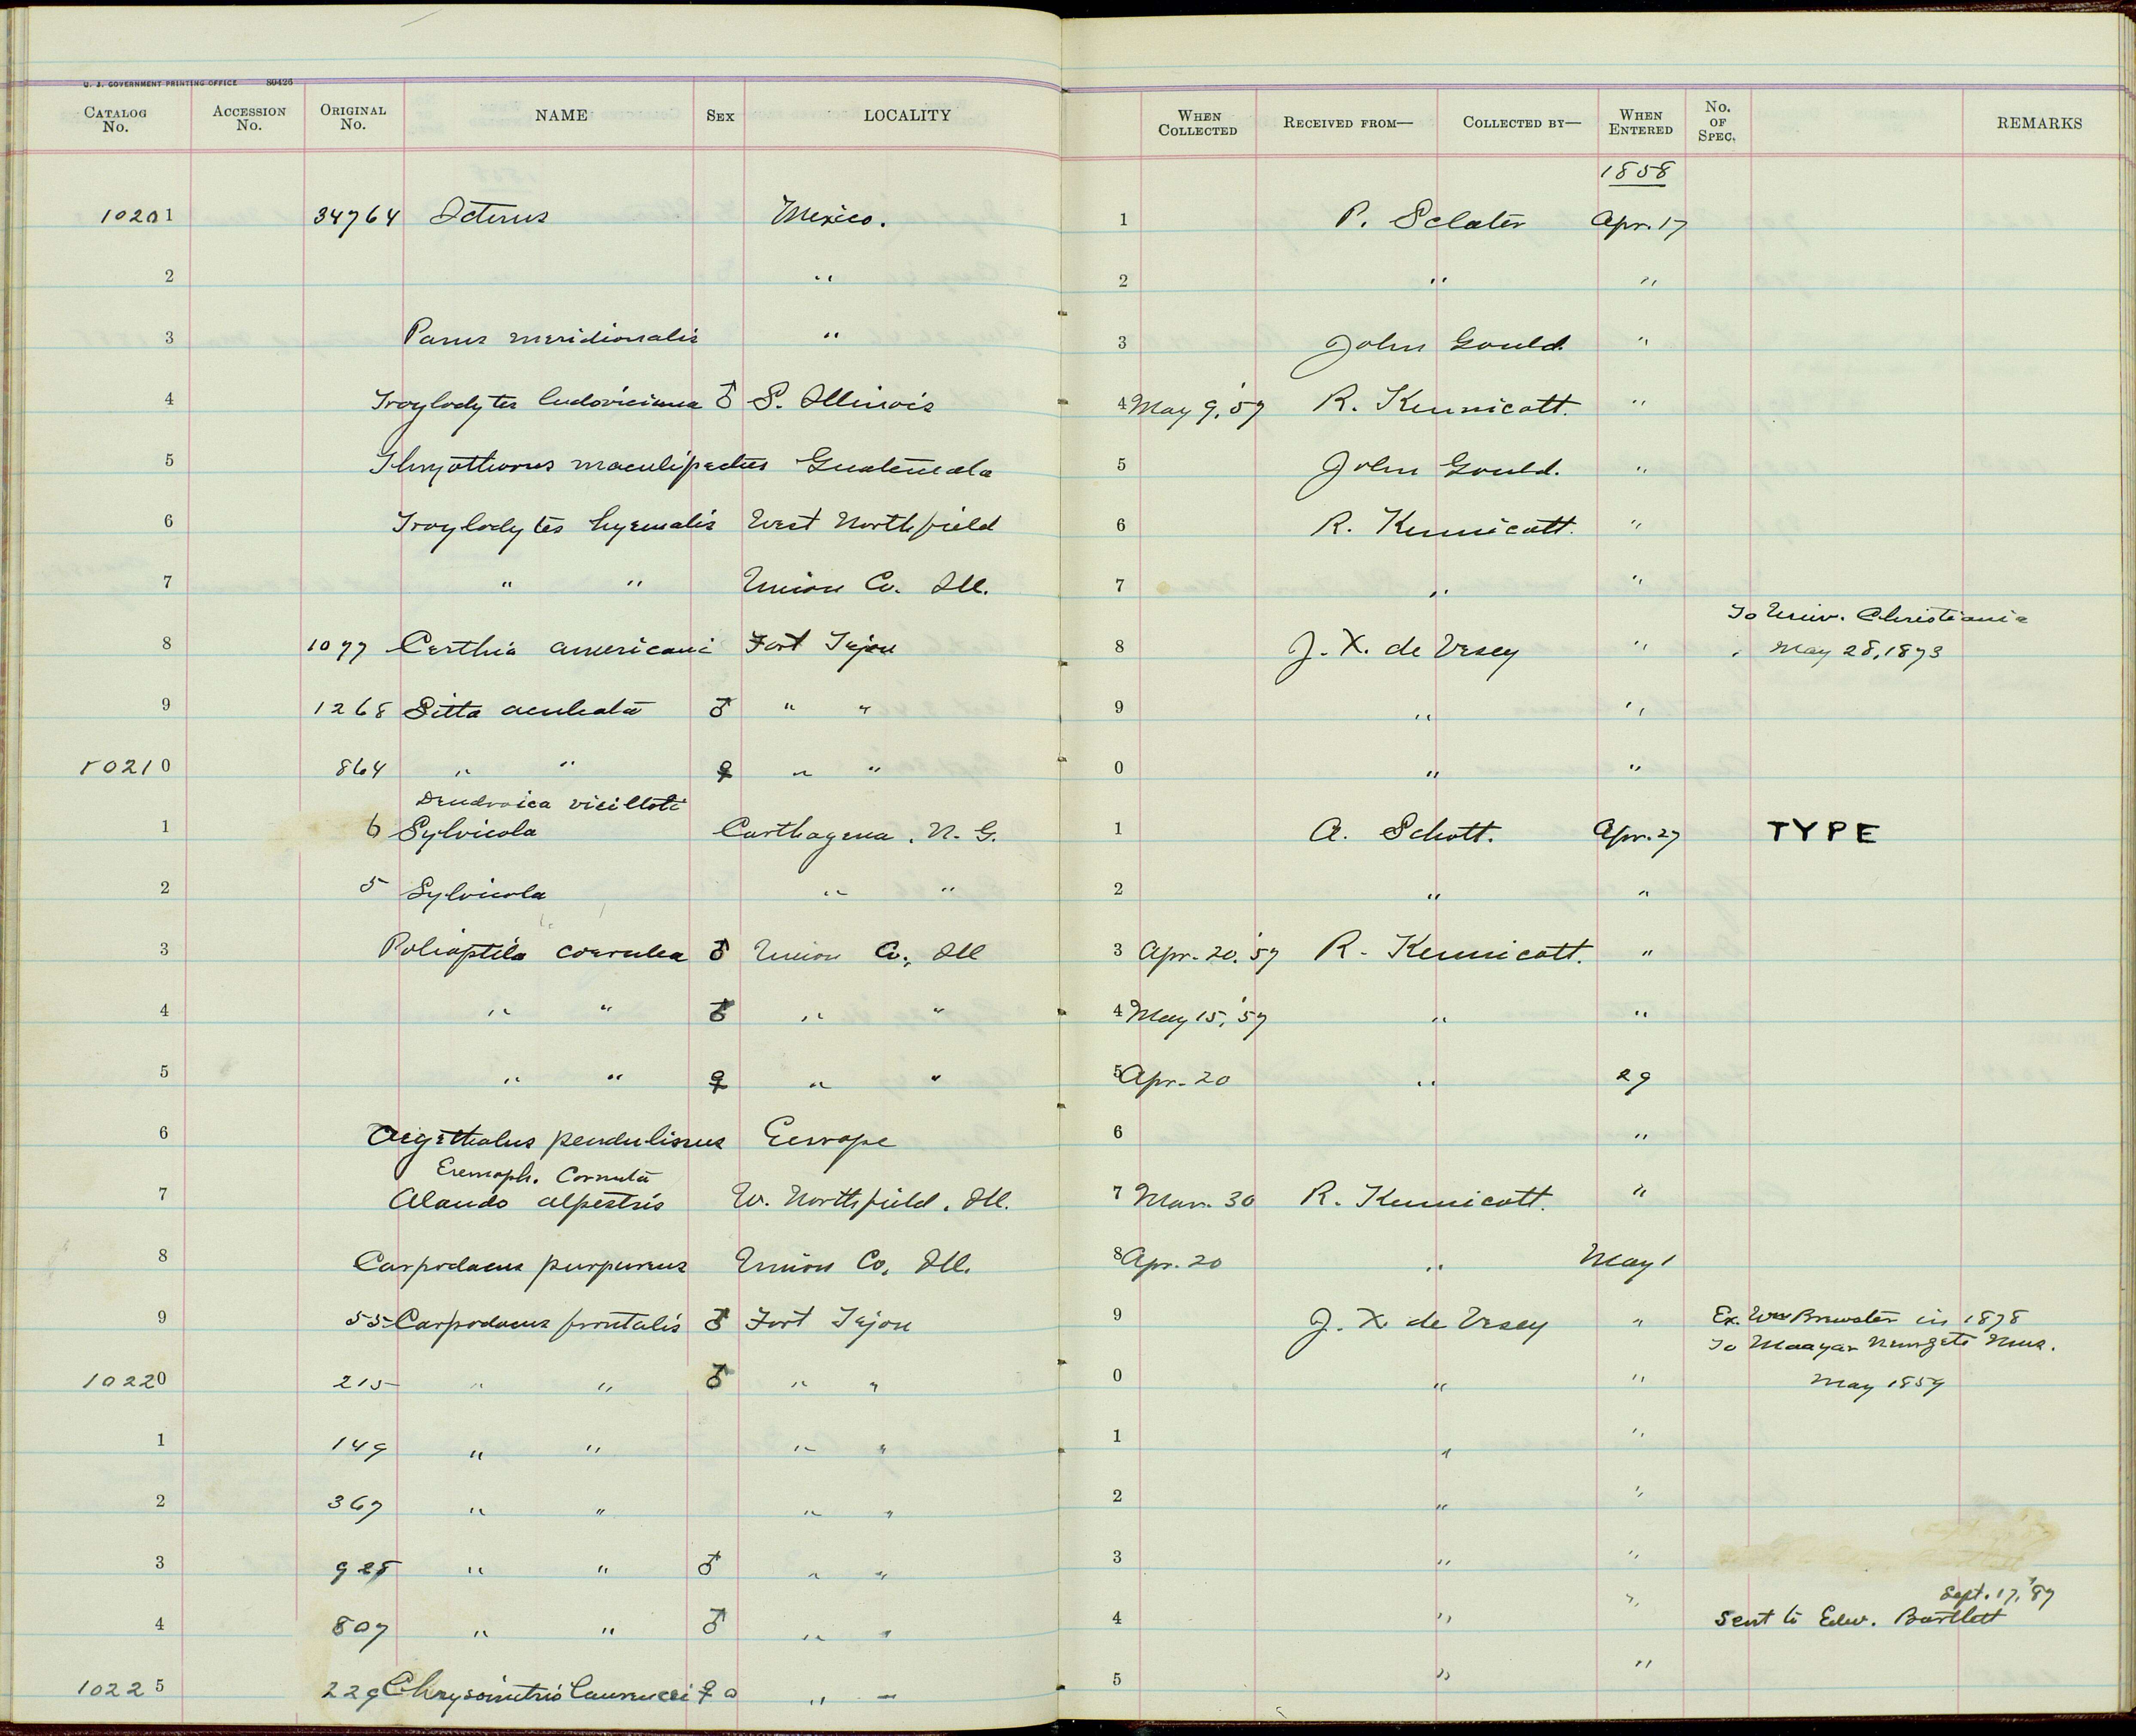 U. S. GOVERNMENT PRINTING OFFICE 80426
CATALOG No. ACCESSION No. ORIGINAL No. NAME SEX LOCALITY WHEN COLLECTED RECEIVED FROM— COLLECTED BY— WHEN ENTERED No. OF SPEC. REMARKS
1858
10201 34764 Icterus Mexico. 1 P. Sclater Apr. 17
2 " 2 " "
3 Parus meridionalis " 3 John Gould "
4 Troglodytes ludovicianus ♂ S. Illinois 4 May 9, '57 R. Kennicott. "
5 Thryothorus maculipectus Guatemala 5 John Gould. "
6 Troglodytes hyemalis West Northfield 6 R. Kennicott. "
7 " " Union Co. Ill. 7 " "
To Univ. Christiania
8 1077 Certhia americana Fort Tejon 8 J. X. de Vesey " May 28, 1873
9 1268 Sitta aculeata ♂ " " 9 " "
10210 864 " " ♀ " " 0 " "
Dendroica vieilloti
1 6 Sylvicola Carthagena, N. G. 1 A. Schott. Apr. 27 TYPE
2 5 Sylvicola " " 2 " "
3 Polioptila coerulea ♂ Union Co., Ill 3 Apr. 20, '57 R. Kennicott. "
4 " " ♂ " " 4 May 15, '57 " "
5 " " ♀ " " 5 Apr. 20 " 29
6 Aegithalus pendulinus Europe 6 "
Eremoph. Cornuta
7 Alauda alpestris W. Northfield, Ill. 7 Mar. 30 R. Kennicott. "
8 Carpodacus purpureus Union Co, Ill. 8 Apr. 20 " May 1
9 55 Carpodacus frontalis ♂ Fort Tejon 9 J. X de Vesey " Ex. Wm Brewster in 1878
To Maayar Nemzeti Mus.
10220 215 " " ♂ " " 0 " " May 1859
1 149 " " " " 1 " "
2 367 " " " " 2 " "
3 928 " " ♂ " " 3 " "
Sept. 17, '87
4 807 " " ♂ " " 4 " " Sent to Edw. Bartlett
10225 229 Chrysomitris ♀ " 5 " "